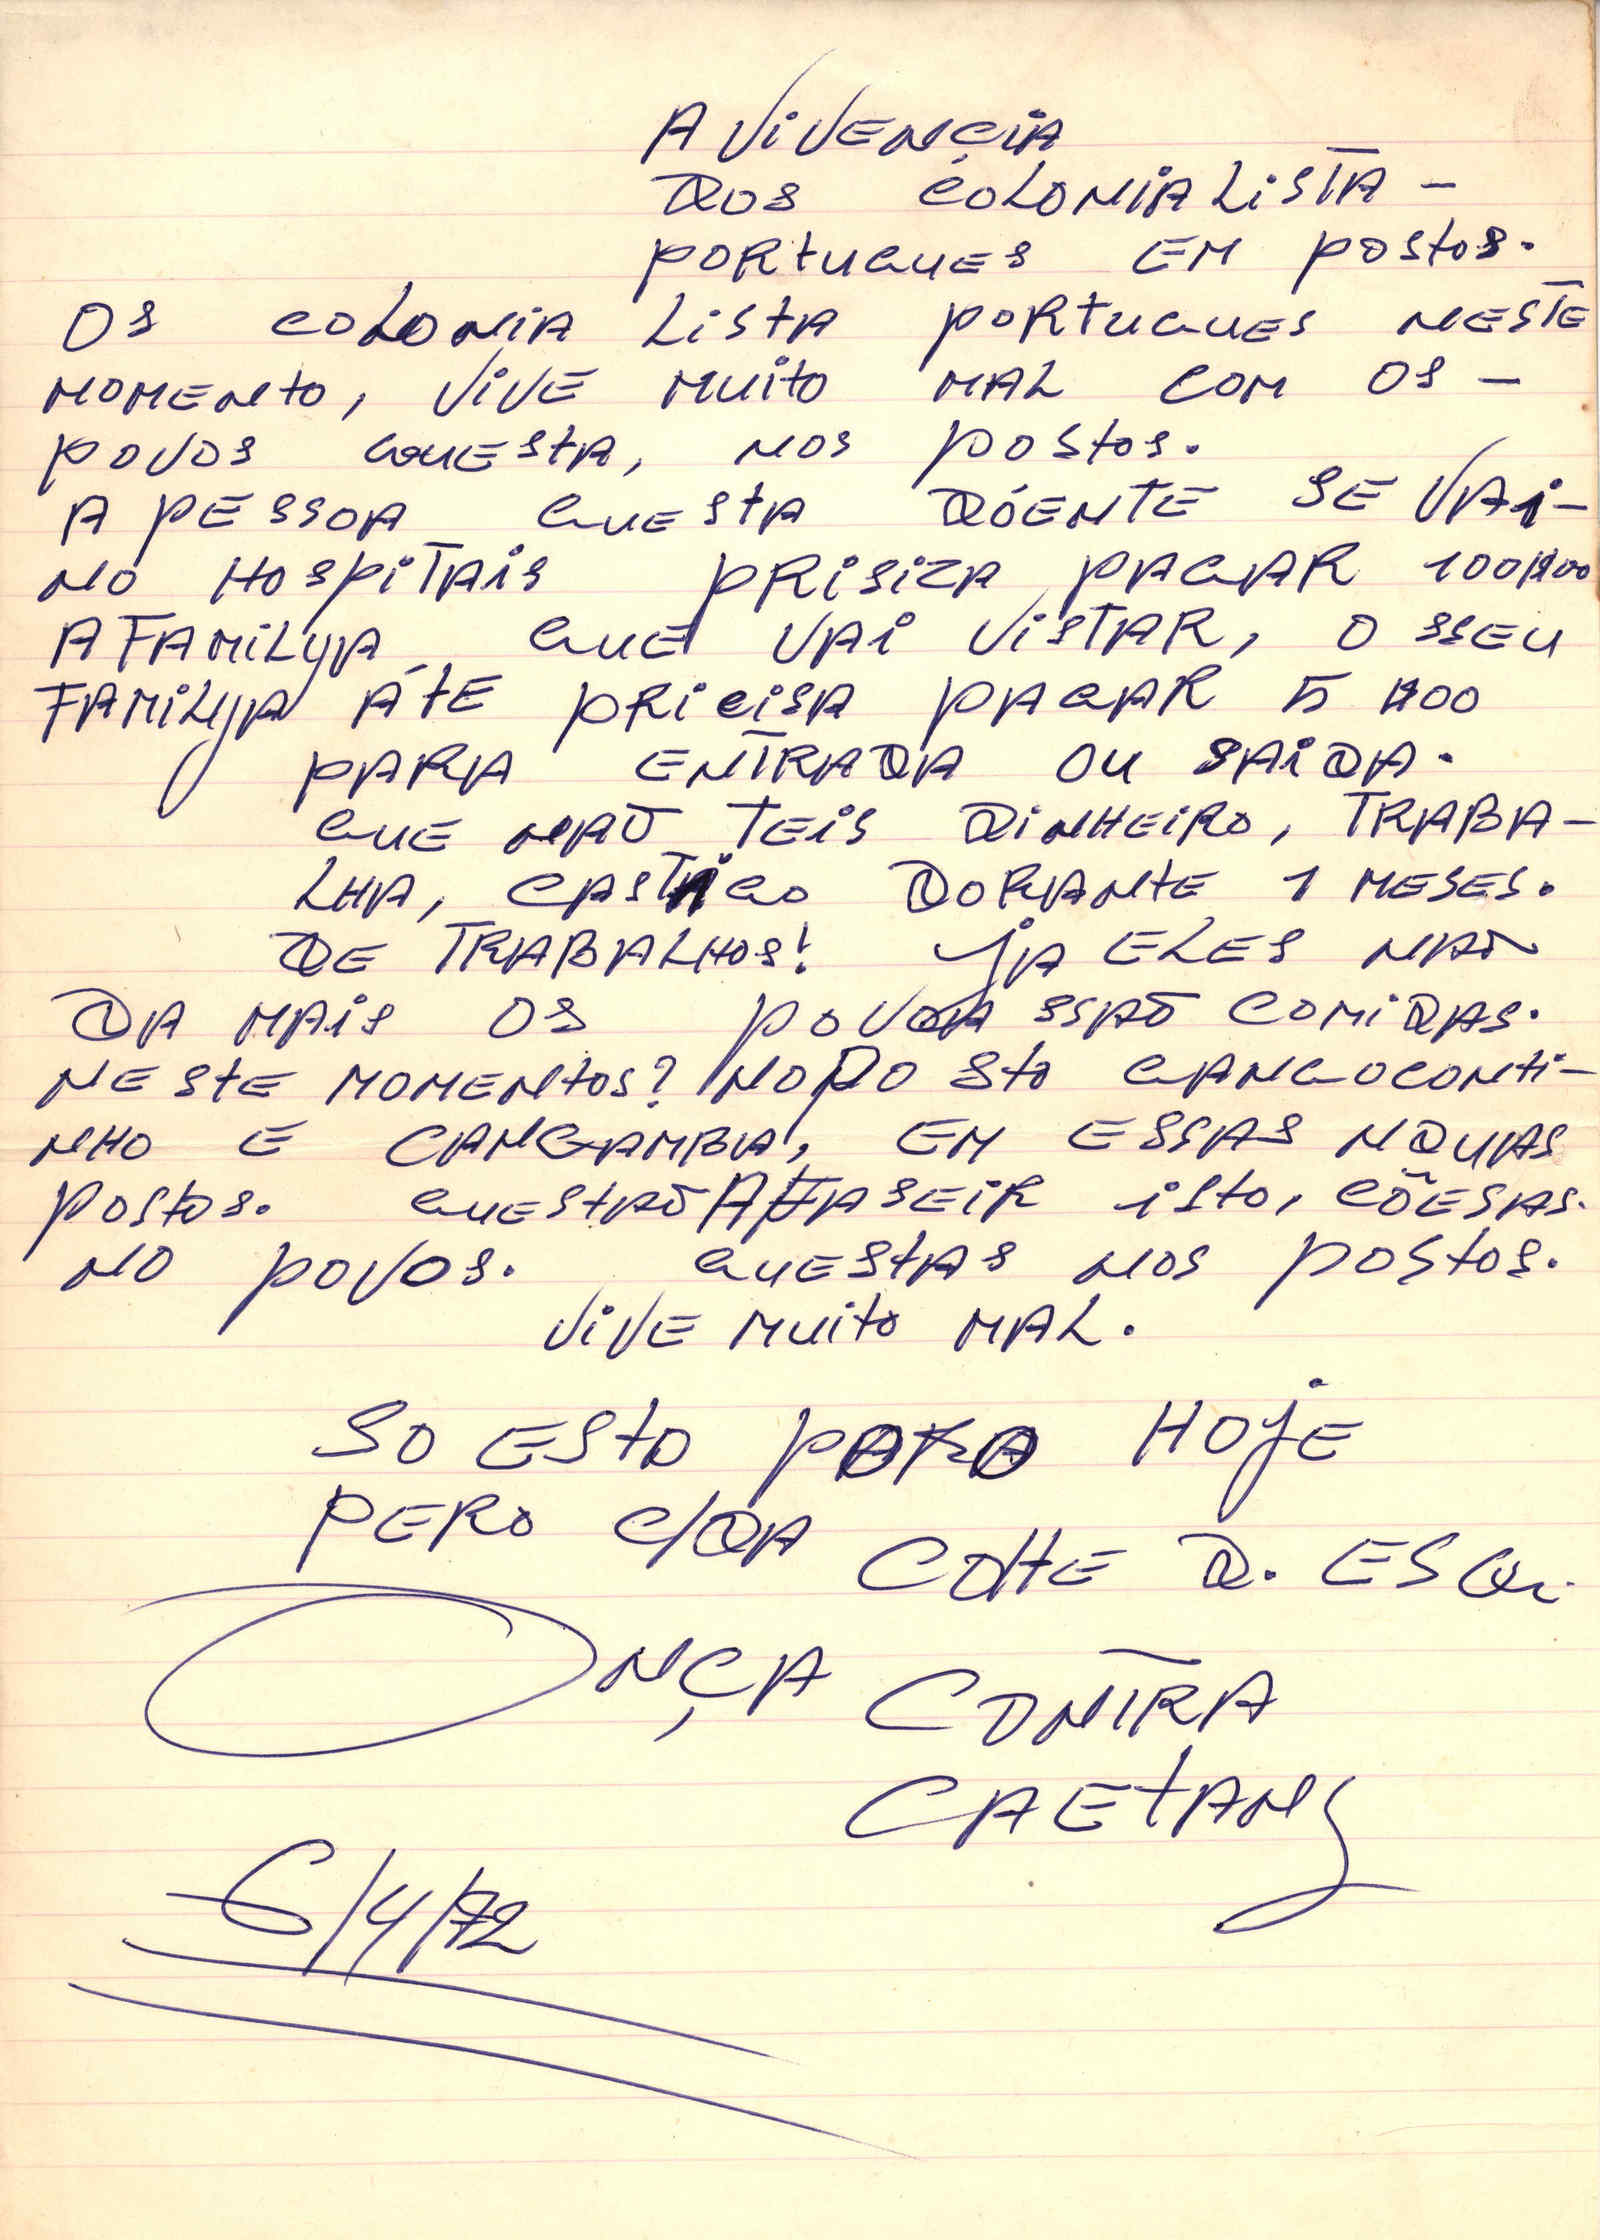 A VIVENCIA
DOS COLONIALISTA -
PORTUGUES EM POSTOS.
OS COLONIA LISTA PORTUGUES NESTE
MOMENTO, VIVE MUITO MAL COM OS -
POVOS QUESTA, NOS POSTOS.
A PESSOA QUESTA DÓENTE SE VAI -
NO HOSPITAIS PRISIZA PAGAR 100$00
A FAMILYA QUE VAI VISTAR, O SSEU
FAMILYA ÁTE PRICISA PAGAR 5 $00
PARA ENTRADA OU SAIDA.
QUE NAÕ TEIS DINHEIRO, TRABA-
LHA, CASTIGO DORANTE 1 MESES.
DE TRABALHOS! JA ELES NAÕ
DA MAIS OS SSAÕ COMIDAS.
NESTE MOMENTOS? NO POSTO GANGOCONTI-
NHO E CANGAMBA, EM ESSAS NDUAS
POSTOS. QUESTAÕ A FASEIR ISTO, CÕESAS.
NO POVOS. QUESTAS NOS POSTOS.
VIVE MUITO MAL.
SO ESTO PARA HOJE
PERO C/DA COTTE D. ESQ.
ONÇA CONTRA
CAETANO
6/4/72